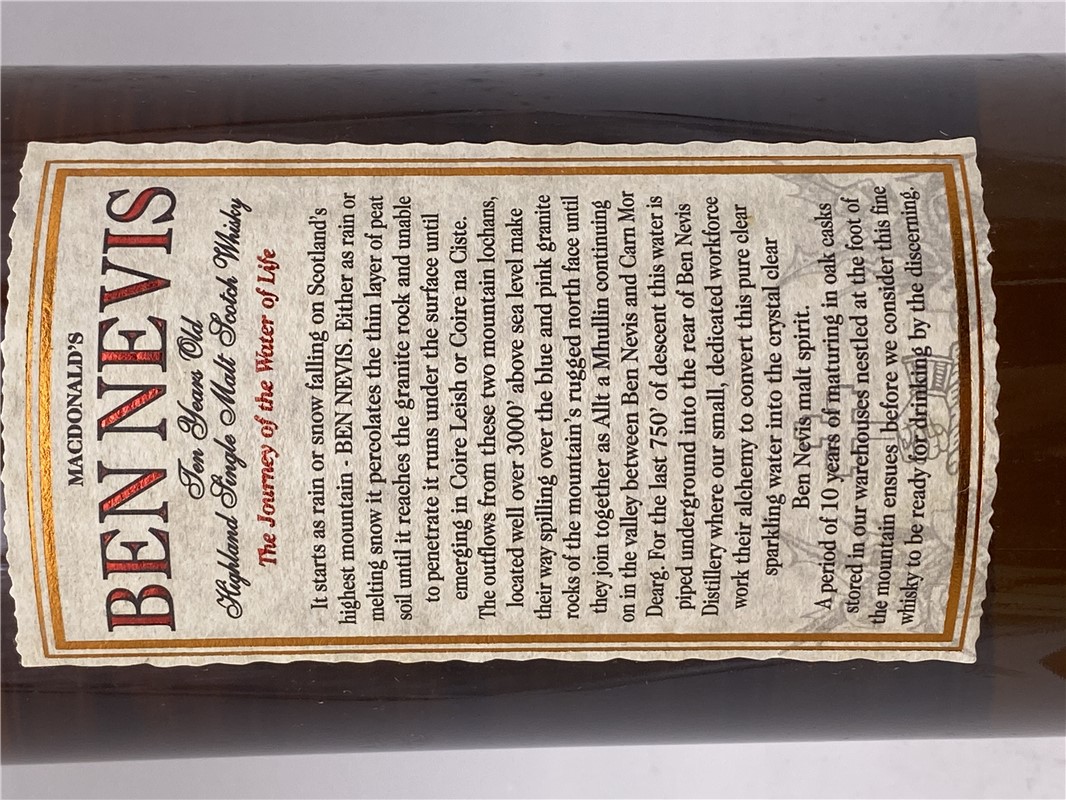 MACDONALD'S
BEN NEVIS
Ten Years Old
Highland Single Malt Scotch Whisky
The Journey of the Water of Life
It starts as rain or snow falling on Scotland's
highest mountain - BEN NEVIS. Either as rain or
melting snow it percolates the thin layer of peat
soil until it reaches the granite rock and unable
to penetrate it runs under the surface until
emerging in Coire Leish or Coire na Ciste.
The outflows from these two mountain lochans,
located well over 3000' above sea level make
their way spilling over the blue and pink granite
rocks of the mountain's rugged north face until
they join together as Allt a Mhullin continuing
on in the valley between Ben Nevis and Carn Mor
Dearg. For the last 750' of descent this water is
piped underground into the rear of Ben Nevis
Distillery where our small, dedicated workforce
work their alchemy to convert this pure clear
sparkling water into the crystal clear
Ben Nevis malt spirit.
A period of 10 years of maturing in oak casks
stored in our warehouses nestled at the foot of
the mountain ensues before we consider this fine
whisky to be ready for drinking by the discerning.